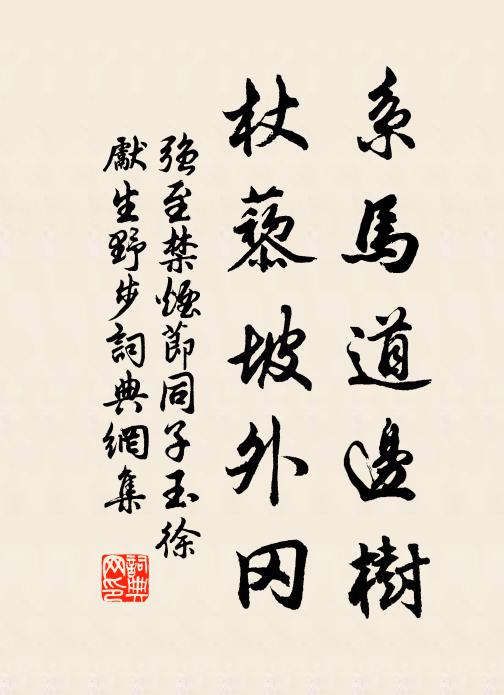 系馬道邊樹
杖藜坡外冈
強至禁煙節同子玉徐
獻生野步詞典網集
詞典網印